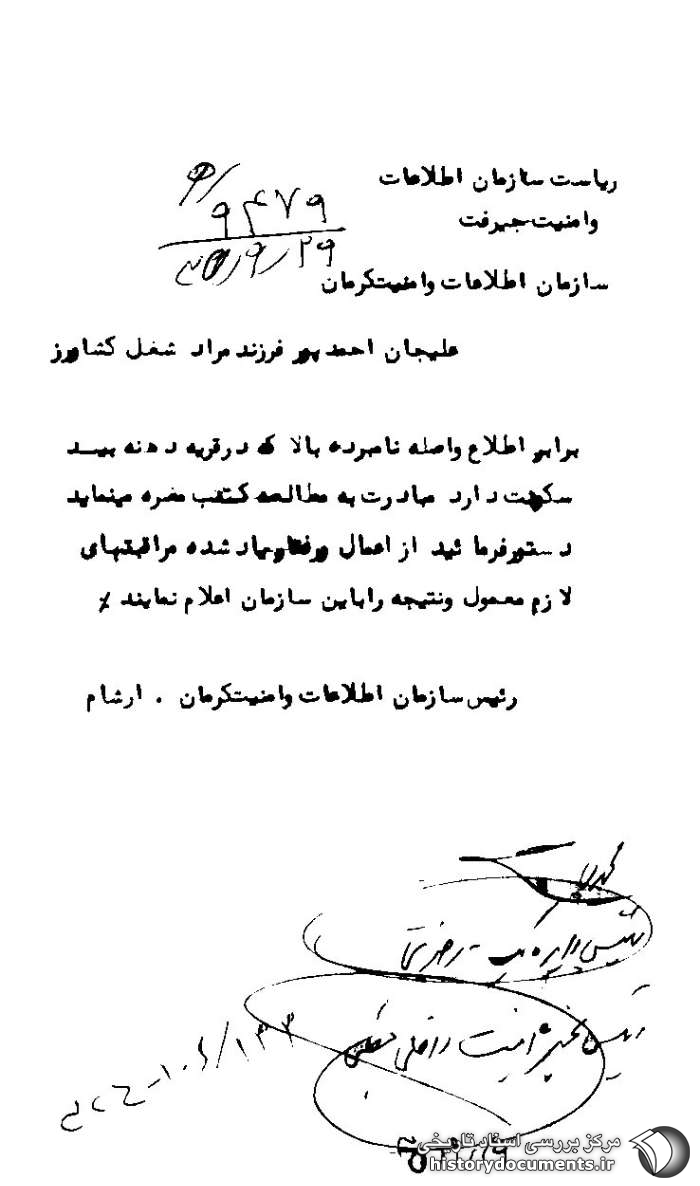 ریاست سازمان اطلاعات
وامنیت جیرفت
۹۴۷۹
۲۹/۹/
سازمان اطلاعات وامنیت کرمان
علیجان احمد پور فرزند مراد شغل کشاورز
برابر اطلاع واصله نامبرده بالا که در قریه دهنه بید
سکونت دارد مبادرت به مطالعه کتب مضره مینماید
دستور فرمائید از اعمال و رفتار یاد شده مراقبتهای
لازم معمول ونتیجه راباین سازمان اعلام نمایند
رئیس سازمان اطلاعات وامنیت کرمان . ارشام
رئیس
رئیس بخش امنیت داخلی
مرکز بررسی اسناد تاریخی
historydocuments.ir